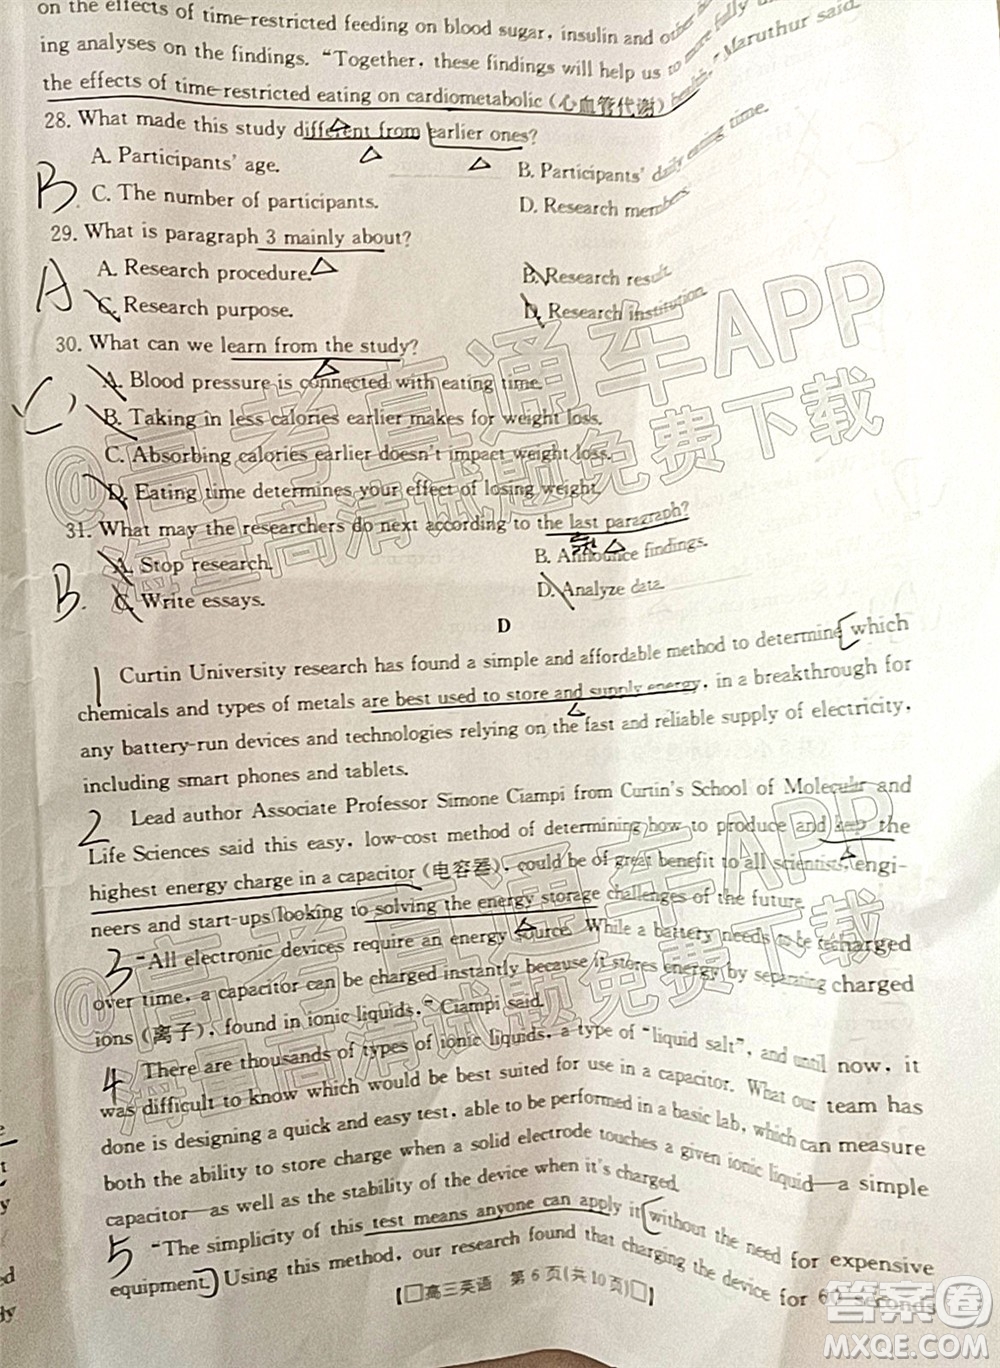 on the effects of time-restricted feeding on blood sugar, insulin and other
ing analyses on the findings. "Together, these findings will help us to more fully
the effects of time-restricted eating on cardiometabolic (心血管代谢) health," Maruthur said.
28. What made this study different from earlier ones?
A. Participants' age.
B. Participants' daily eating time.
B
C. The number of participants.
D. Research members.
29. What is paragraph 3 mainly about?
A. Research procedure.
B. Research result.
A
C. Research purpose.
D. Research institution.
30. What can we learn from the study?
A. Blood pressure is connected with eating time.
C
B. Taking in less calories earlier makes for weight loss.
C. Absorbing calories earlier doesn't impact weight loss.
D. Eating time determines your effect of losing weight.
31. What may the researchers do next according to the last paragraph?
A. Stop research.
B. Announce findings.
B.
C. Write essays.
D. Analyze data.
D
1 Curtin University research has found a simple and affordable method to determine which
chemicals and types of metals are best used to store and supply energy, in a breakthrough for
any battery-run devices and technologies relying on the fast and reliable supply of electricity,
including smart phones and tablets.
2 Lead author Associate Professor Simone Ciampi from Curtin's School of Molecular and
Life Sciences said this easy, low-cost method of determining how to produce and keep the
highest energy charge in a capacitor (电容器), could be of great benefit to all scientists, engi-
neers and start-ups looking to solving the energy storage challenges of the future.
3 "All electronic devices require an energy source. While a battery needs to be recharged
over time, a capacitor can be charged instantly because it stores energy by separating charged
ions (离子), found in ionic liquids," Ciampi said.
4 There are thousands of types of ionic liquids, a type of "liquid salt", and until now, it
was difficult to know which would be best suited for use in a capacitor. What our team has
done is designing a quick and easy test, able to be performed in a basic lab, which can measure
both the ability to store charge when a solid electrode touches a given ionic liquid—a simple
capacitor—as well as the stability of the device when it's charged.
5 "The simplicity of this test means anyone can apply it without the need for expensive
equipment. Using this method, our research found that charging the device for 60 seconds
【□高三英语 第 6 页(共 10 页)□】
@高考直通车APP
海量高清试题免费下载
@高考直通车APP
海量高清试题免费下载
答案圈
MXQE.COM